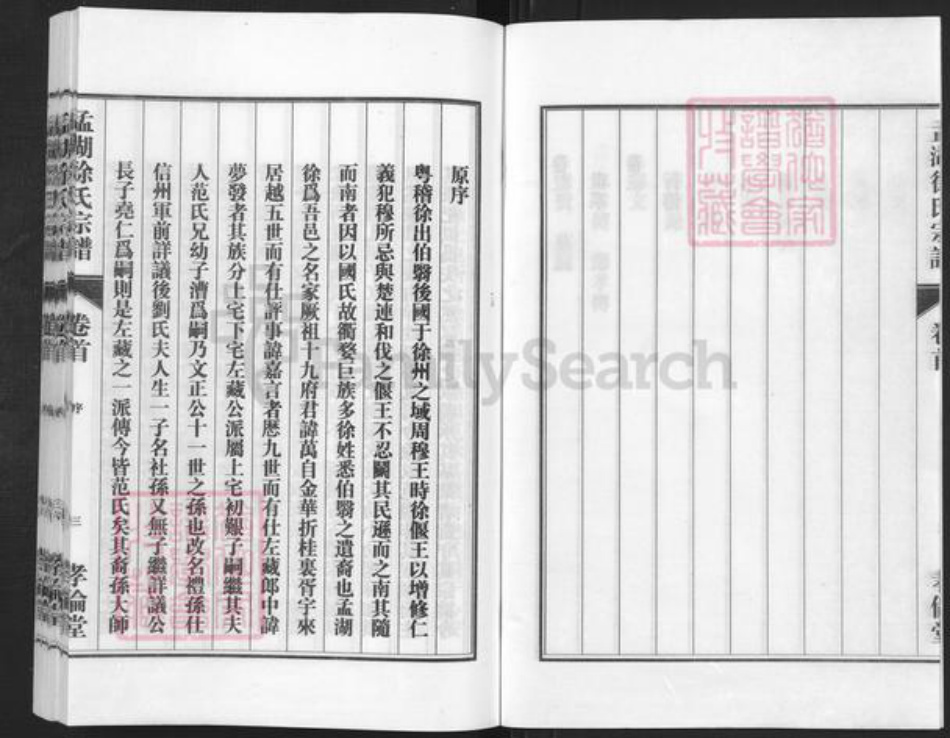 原序
粵稽徐出伯翳後國于徐州之域周穆王時徐偃王以增修仁
義犯穆所忌與楚連和伐之偃王不忍鬭其民遜而之南其隨
而南者因以國氏故衢婺巨族多徐姓悉伯翳之遺裔也孟湖
徐爲吾邑之名家厥祖十九府君諱萬自金華折桂裏胥宇來
居越五世而有仕評事諱嘉言者歷九世而有仕左藏郎中諱
夢發者其族分上宅下宅左藏公派屬上宅初艱子嗣繼其夫
人范氏兄幼子漕爲嗣乃文正公十一世之孫也改名禮孫仕
信州軍前詳議後劉氏夫人生一子名社孫又無子繼詳議公
長子堯仁爲嗣則是左藏之一派傳今皆范氏矣其裔孫大師
孟湖徐氏宗譜
卷首
序
三
孝倫堂
FamilySearch